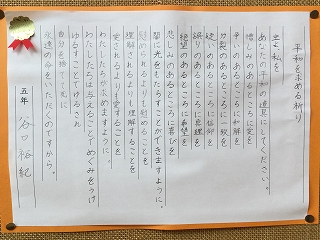 平和を求める祈り
主よ、私を
あなたの平和の道具にしてください。
憎しみのあるところに愛を
争いのあるところに和解を
分裂のあるところに一致を
疑いのあるところに信仰を
誤りのあるところに真理を
絶望のあるところに希望を
悲しみのあるところに喜びを
闇に光をもたらすことができますように。
慰められるよりも慰めることを
理解されるよりも理解することを
愛されるよりも愛することを
わたしたちが求めますように。
わたしたちは与えることでめぐみをうけ
ゆるすことでゆるされ
自分を捨てて死に
永遠の命をいただくのですから。
五年 谷口 裕紀